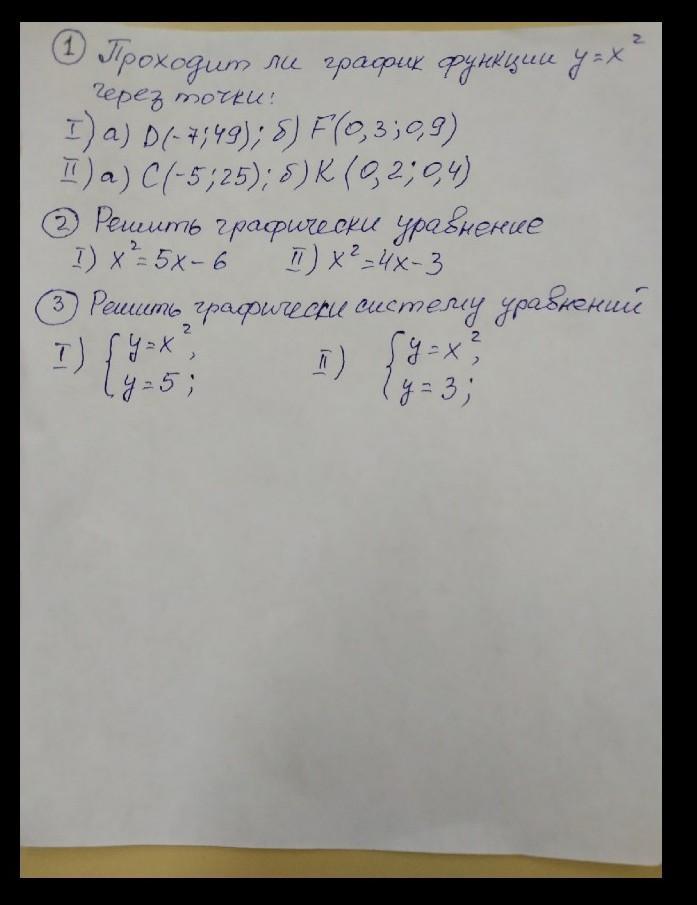 ① Проходит ли график функции y=x²
через точки:
I) а) D(-7;49); б) F(0,3;0,9)
II) а) C(-5;25); б) K (0,2;0,4)
② Решить графически уравнение
I) x²=5x-6 II) x²=4x-3
③ Решить графически систему уравнений
I) { y=x², II) { y=x²,
y=5; y=3;